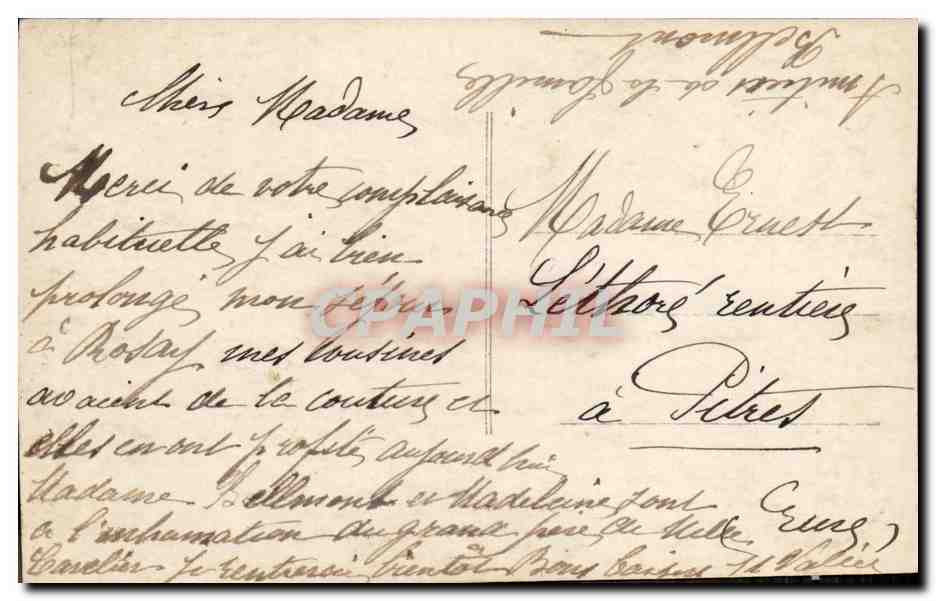 Chère Madame
Merci de votre complaisance
habituelle j'ai bien
prolongé mon séjour
à Rosay mes cousines
avaient de la couture et
elles en ont profité aujourd'hui
Madame Bellmont et Madeleine sont
a l'inhumation du grand pere de Melle
Carelier Je rentrerai bientôt Bons baisers
Amitiés de la famille
Bellmont
Madame Ernest
Léthoré rentière
à Pitres
(Eure)
CPAPHIL